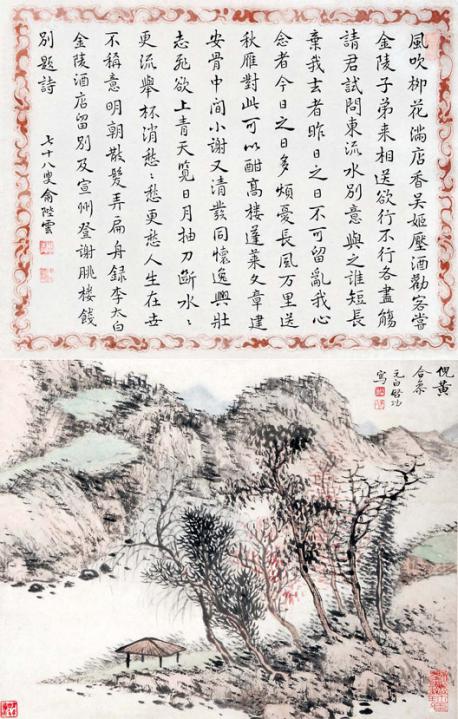 風吹柳花滿店香吳姬壓酒勸客嘗
金陵子弟來相送欲行不行各盡觴
請君試問東流水別意與之誰短長
棄我去者昨日之日不可留亂我心
念者今日之日多煩憂長風万里送
秋雁對此可以酣高樓蓬萊文章建
安骨中間小謝又清發同懷逸興壯
志飛欲上青天覽日月抽刀斷水〻
更流舉杯消愁〻愁更愁人生在世
不稱意明朝散髮弄扁舟錄李太白
金陵酒店留別及宣州登謝朓樓餞
別題詩
七十八叟俞陛雲
倪黃
合參
元白啓功
寫